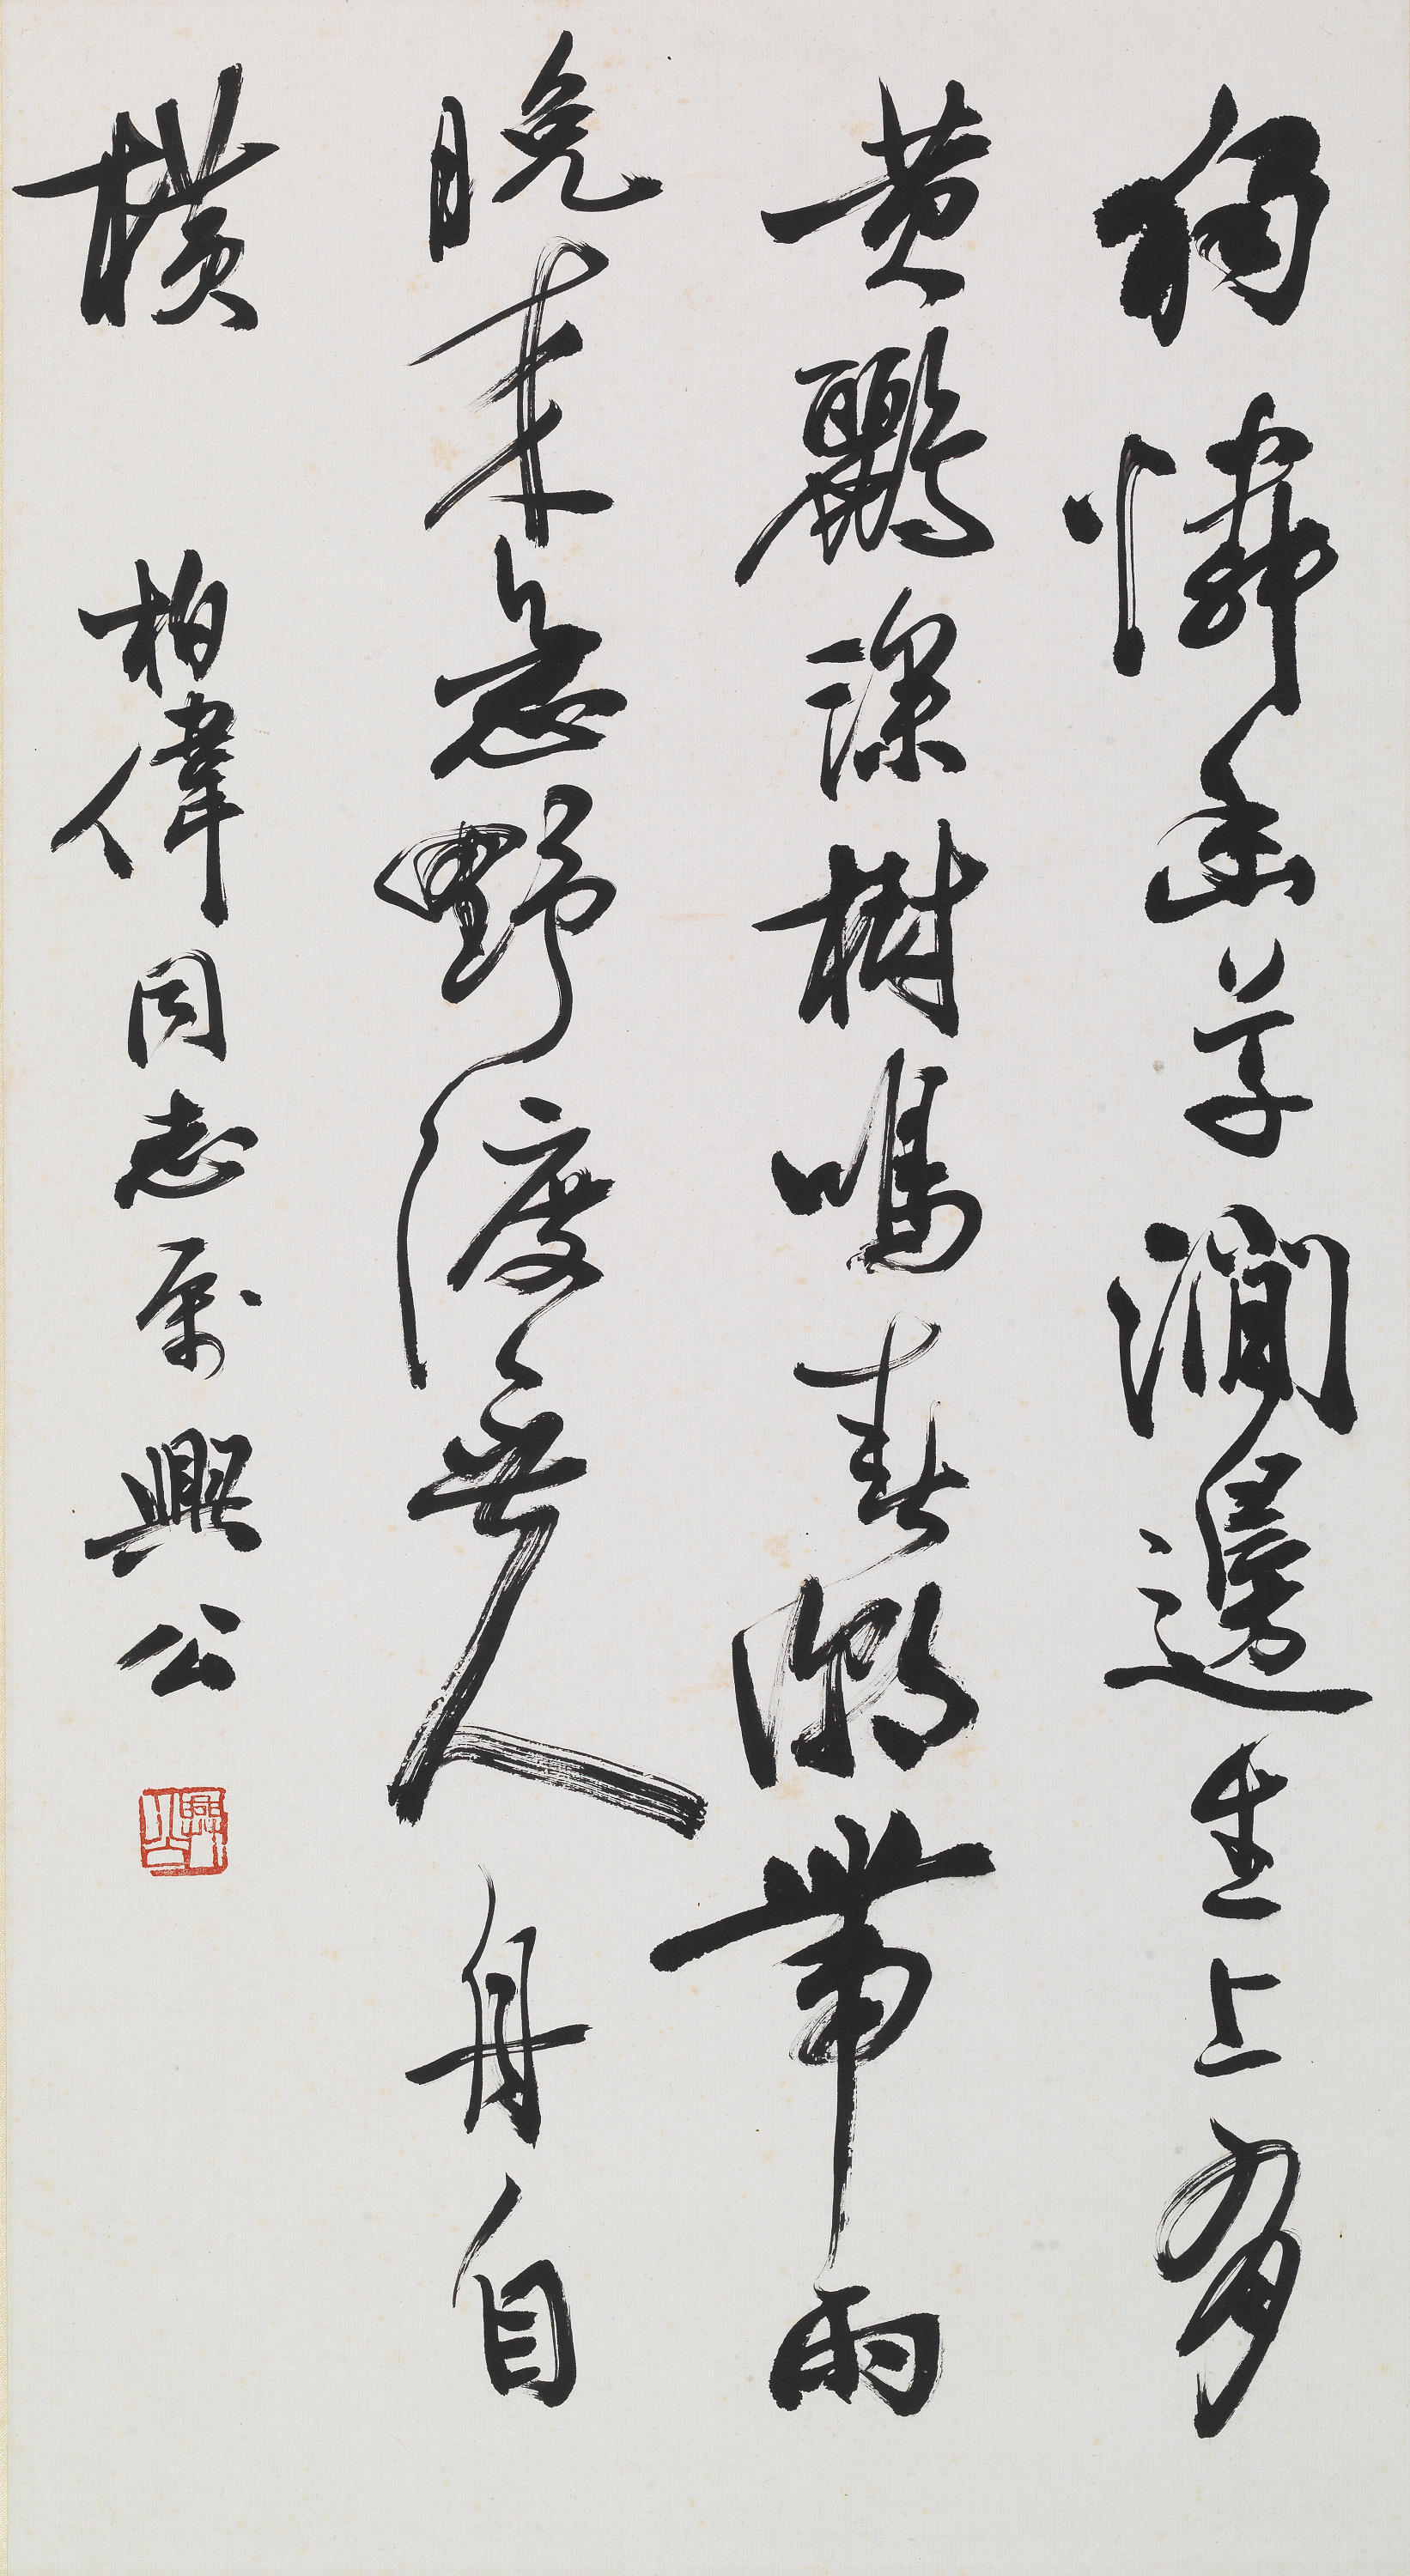 獨憐幽草澗邊生上有
黄鸝深樹鳴春潮帶雨
晚來急野渡無人舟自
橫 柏偉同志屬 興公
興公